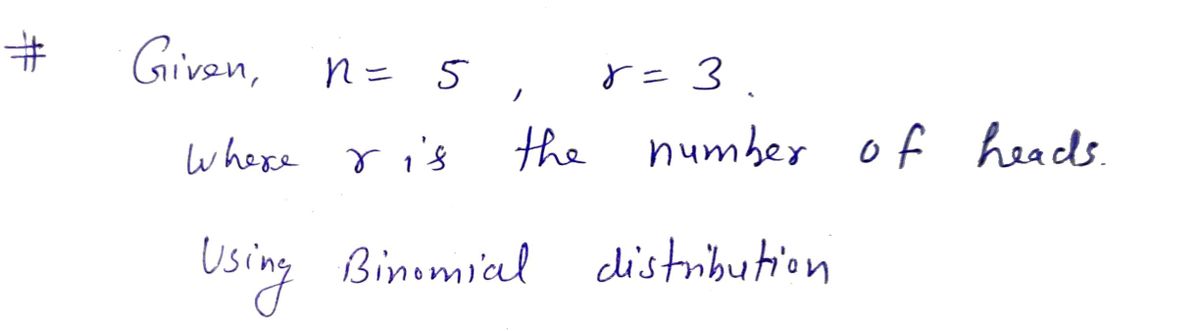 # Given, n = 5 , r = 3 .
where r is the number of heads.
Using Binomial distribution